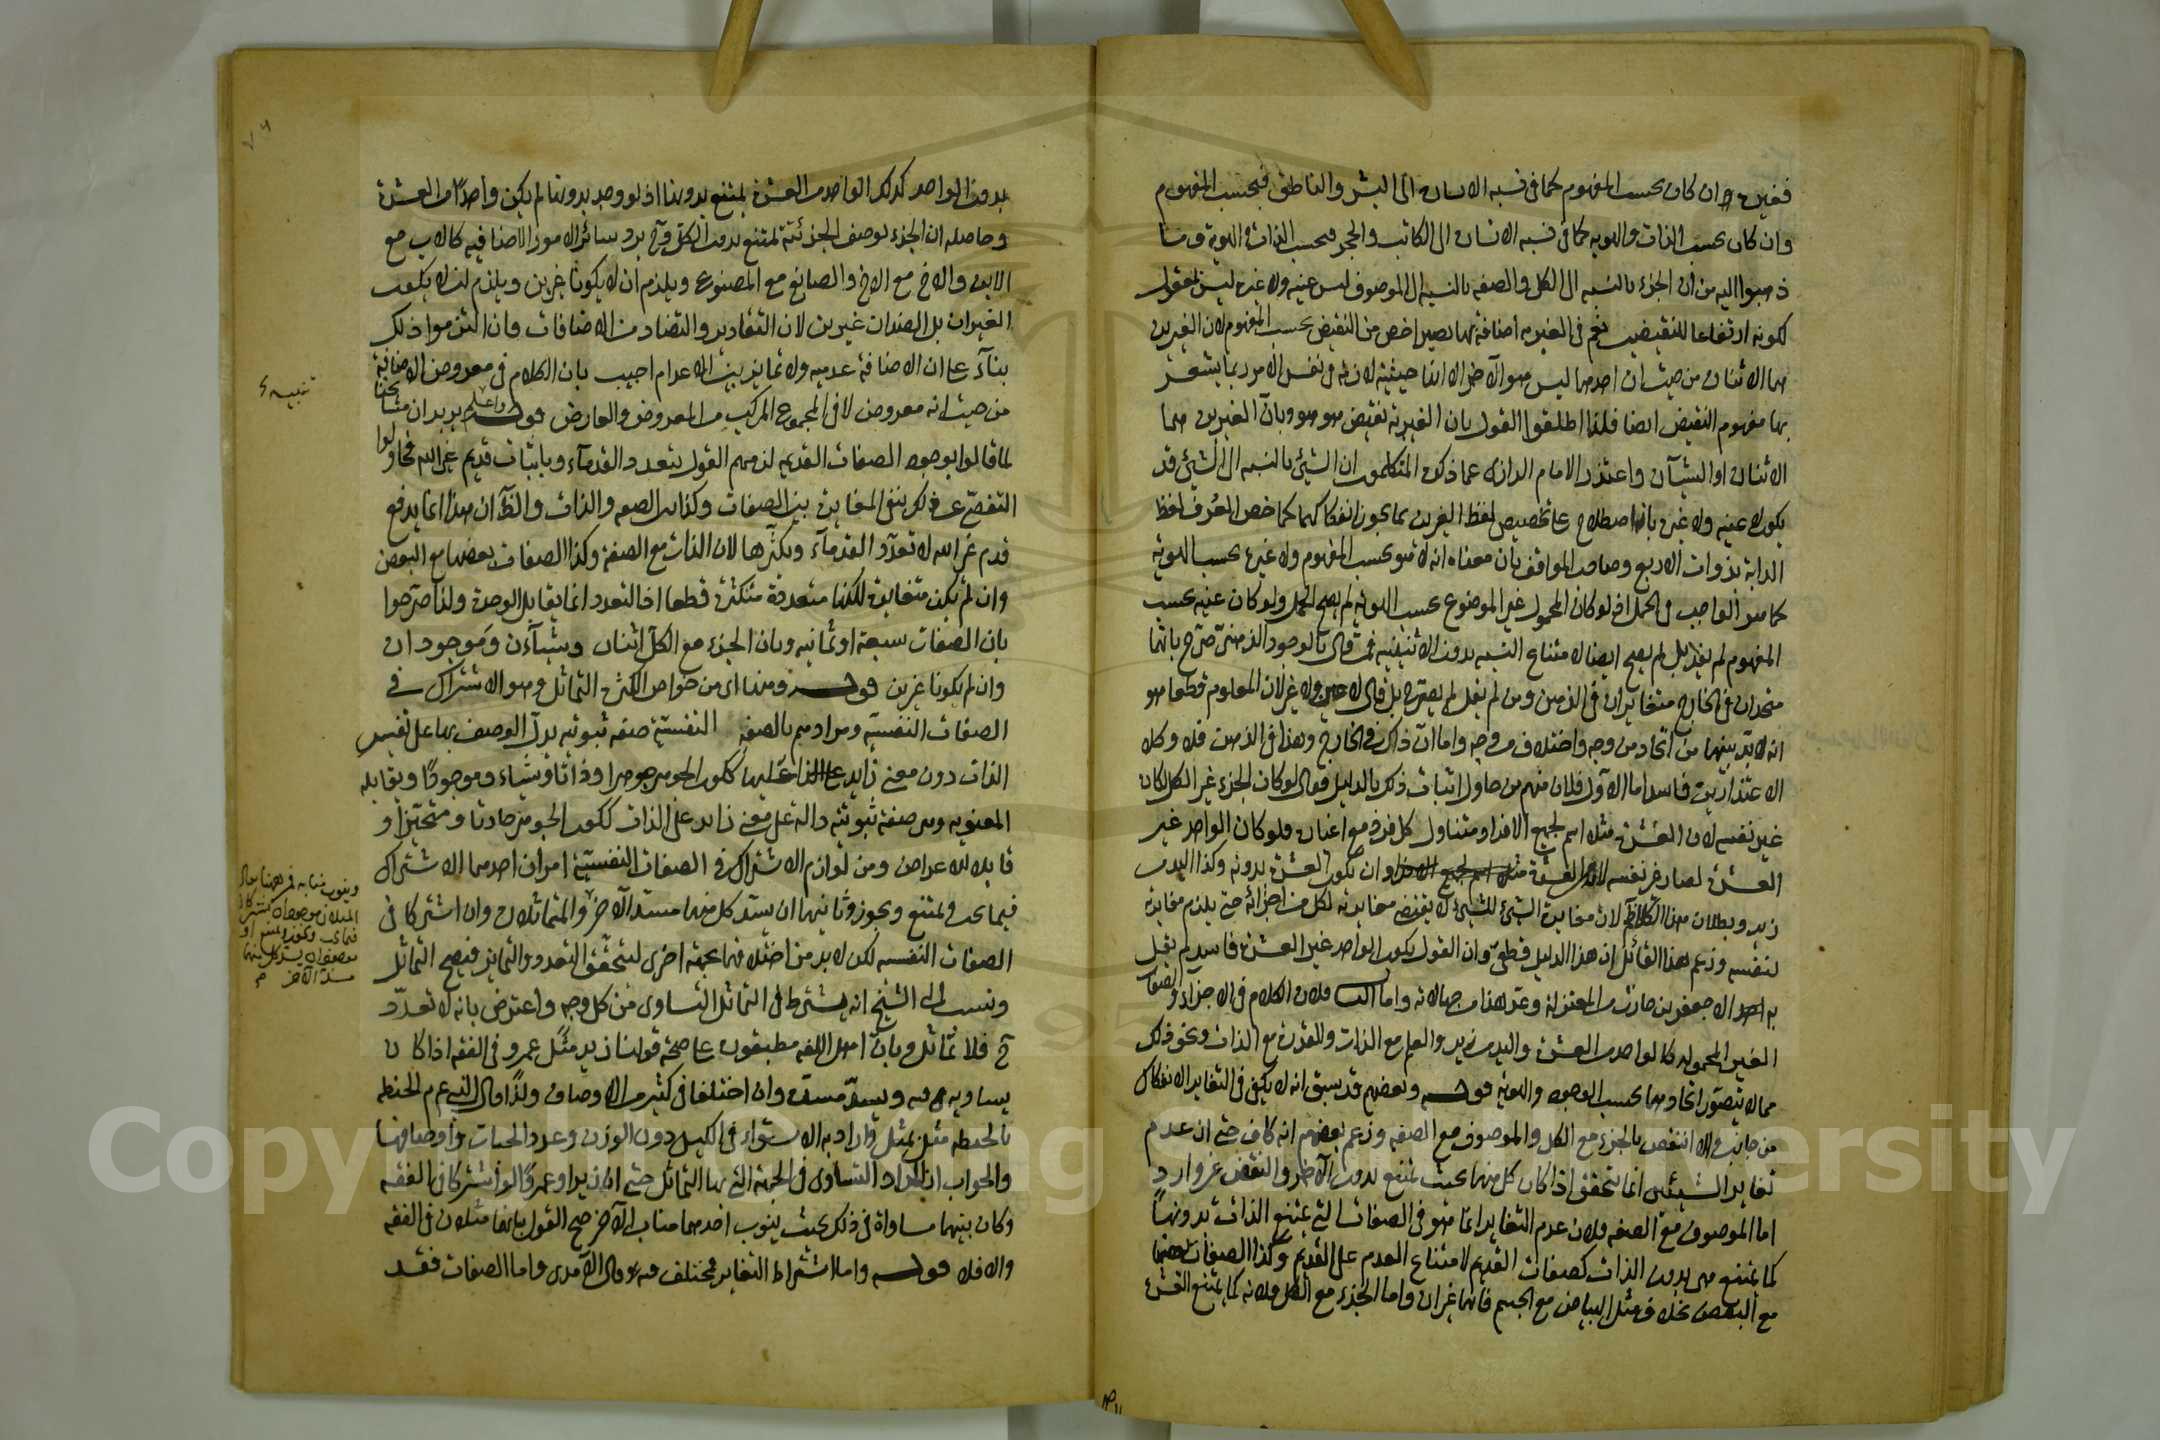 فغيره وان كان بحسب المفهوم كما في نسبة الانسان الى البشر والناطق فبحسب المفهوم
وان كان بحسب الذات والهوية كما في نسبة الانسان الى الكاتب والحجر فبحسب الذات والهوية وما
ذهبوا اليه من ان الجزء بالنسبة الى الكل والصفة بالنسبة الى الموصوف ليس عينه ولا غيره ليس بمعقول
لكونه ارتفاعا للنقيضين نعم في الغيرية اضافة بها يصير اخص من النقيض بحسب المفهوم لان الغيرين
هما الاثنان من حيث ان احدهما ليس هو الآخر الا انها حيثية لازمة في نفس الامر ربما يشعر
بها مفهوم النقيض ايضا فلذا اطلقوا القول بان الغيرية نقيض هو هو وبان الغيرين هما
الاثنان او الشيئان واعتذر الامام الرازي عما ذكره المتكلمون ان الشيء بالنسبة الى الشيء قد
يكون لا عينه ولا غيره بانه اصطلاح على تخصيص لفظ الغيرين بما يجوز انفكاكهما كما خص العرف لفظ
الدابة بذوات الاربع وصاحب المواقف بان معناه انه لا هو بحسب المفهوم ولا غيره بحسب الهوية
كما هو الواجب في الحمل اذ لو كان المحمول غير الموضوع بحسب الهوية لم يصح الحمل ولو كان عينه بحسب
المفهوم لم يفد بل لم يصح ايضا لامتناع النسبة بدون الاثنينية فمن قال بالوجود الذهني صرح بانهما
متحدان في الخارج متغايران في الذهن ومن لم يقل لم يصرح بل قال لا عين ولا غير لان المعلوم قطعا هو
انه لا بد بينهما من اتحاد من وجه واختلاف من وجه واما ان ذاك في الخارج وهذا في الذهن فلا وكلا
الاعتذارين فاسد اما الاول فلان منهم من حاول اثبات ذلك بالدليل فقال لو كان الجزء غير الكل لكان
غير نفسه لان العشرة مثلا اسم لجميع الافراد متناول كل فرد مع اغياره فلو كان الواحد غير
العشرة لصار غير نفسه لانه من العشرة وان تكون العشرة بدونه وكذا اليد من
زيد وبطلان هذا الكلام لان مغايرة الشيء للشيء لا يقتضي مغايرته لكل من اجزائه حتى يلزم مغايرته
لنفسه وزعم هذا القائل ان هذا الدليل قطعي وان القول بكون الواحد غير العشرة فاسد لم يقل
به احد الا جعفر بن حارث من المعتزلة وعد هذا من جهالاته واما الثاني فلان الكلام في الاجزاء والصفات
الغير المحمولة كالواحد من العشرة واليد من زيد والعلم مع الذات والقدرة مع الذات ونحو ذلك
مما لا يتصور اتحادهما بحسب الوجود والهوية قوله وبعضهم قد سبق انه لا يكفي في التغاير الانفكاك
من جانب والا انتقض بالجزء مع الكل والموصوف مع الصفة وزعم بعضهم انه كاف حتى ان عدم
تغاير الشيئين انما يتحقق اذا كان كل منهما بحيث يمتنع بدون الآخر والنقض غير وارد
اما الموصوف مع الصفة فلان عدم التغاير انما هو في الصفات التي يمتنع الذات بدونها
كما يمتنع هي بدون الذات كصفات القديم لامتناع العدم على القديم وكذا الصفات بعضها
مع البعض بخلاف مثل البياض مع الجسم فانهما غيران واما الجزء مع الكل فلانه كما يمتنع العشرة
بدون الواحد كذلك الواحد من العشرة يمتنع بدونها اذ لو وجد بدونها لم يكن واحدا من العشرة
وحاصله ان الجزء بوصف الجزئية يمتنع بدون الكل وح يرد سائر الامور الاضافية كالاب مع
الابن والاخ مع الاخ والصانع مع المصنوع ويلزم ان لا يكونا غيرين ويلزم ان لا يكون
الغيران بل الضدان غيرين لان التغاير والتضاد من الاضافات وان التزموا ذلك
بناء على ان الاضافة عدمية ولا تمايز بين الاعدام اجيب بان الكلام في معروض الاضافة
من حيث انه معروض لا في المجموع المركب من المعروض والعارض قوله واعلم يريد ان مشايخنا
لما قالوا بوجود الصفات القديمة لزمهم القول بتعدد القدماء وباثبات قديم غير الله فحاولوا
التفصي عن ذلك بنفي المغايرة بين الصفات وكذا بين الصفة والذات والظ ان هذا انما يدفع
قدم غير الله لا تعدد القدماء وتكثرها لان الذات مع الصفة وكذا الصفات بعضها مع البعض
وان لم يكن متغايرة لكنها متعددة متكثرة قطعا اذ التعدد انما يقابل الوحدة ولذا صرحوا
بان الصفات سبعة او ثمانية وبان الجزء مع الكل اثنان وشيئان وموجودان
وان لم يكونا غيرين قوله ومنها اى من خواص الكثرة التماثل وهو الاشتراك في
الصفات النفسية ومرادهم بالصفة النفسية صفة ثبوتية يدل الوصف بها على نفس
الذات دون معنى زايد عليها ككون الجوهر جوهرا وذاتا وشيئا وموجودا ويقابله
المعنوية وهي صفة ثبوتية دالة على معنى زايد على الذات ككون الجوهر حادثا ومتحيزا و
قابلا للاعراض ومن لوازم الاشتراك في الصفات النفسية امران احدهما الاشتراك
فيما يجب ويمتنع ويجوز وثانيهما ان يسد كل منهما مسد الآخر والمتماثلان وان اشتركا في
الصفات النفسية لكن لا بد من اختلافهما بجهة اخرى ليتحقق التعدد والتمايز فيصح التماثل
ونسب الى الشيخ انه يشترط في التماثل التساوي من كل وجه واعترض بانه لا تعدد
ح فلا تماثل وبان اهل اللغة مطبقون على صحة قولنا زيد مثل عمرو في الفقه اذا كان
يساويه فيه ويسد مسده وان اختلفا في كثير من الاوصاف ولذا قال النبي عم الحنطة
بالحنطة مثل بمثل واراد به الاستواء في الكيل دون الوزن وعدد الحبات واوصافها
والجواب ان المراد التساوي في الجهة التي بها التماثل حتى ان زيدا وعمروا لو اشتركا في الفقه
وكان بينهما مساواة في ذلك بحيث ينوب احدهما مناب الآخر صح القول بانهما مثلان في الفقه
والا فلا قوله واما اشتراط التغاير فمختلف فيه قال الآمدي واما الصفات فقد
تنبيه
وينوب منابه فمن ههنا يقال
المثلان موجودان يشتركان
فيما يجب ويجوز ويمتنع او
موجودان يسد كل منهما
مسد الآخر
Copy King S University